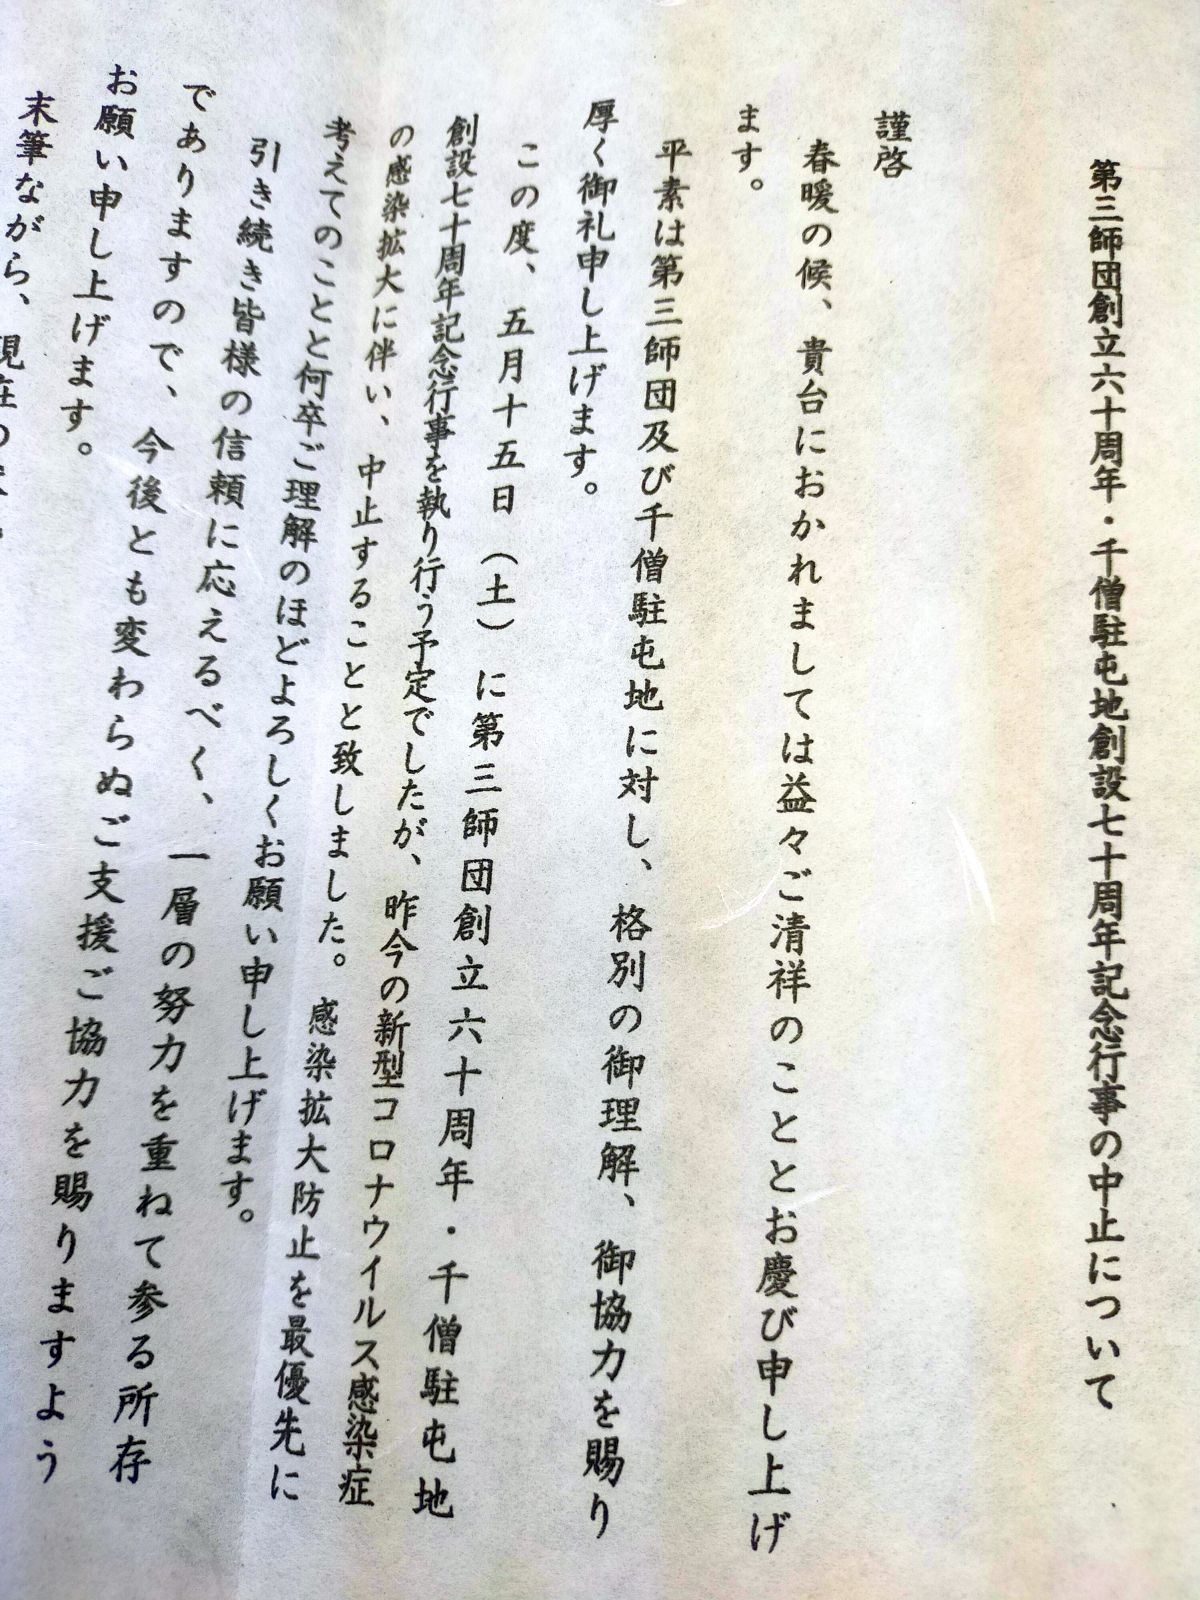 第三師団創立六十周年・千僧駐屯地創設七十周年記念行事の中止について
謹啓
春暖の候、貴台におかれましては益々ご清祥のこととお慶び申し上げ
ます。
平素は第三師団及び千僧駐屯地に対し、格別の御理解、御協力を賜り
厚く御礼申し上げます。
この度、五月十五日（土）に第三師団創立六十周年・千僧駐屯地
創設七十周年記念行事を執り行う予定でしたが、昨今の新型コロナウイルス感染症
の感染拡大に伴い、中止することと致しました。感染拡大防止を最優先に
考えてのことと何卒ご理解のほどよろしくお願い申し上げます。
引き続き皆様の信頼に応えるべく、一層の努力を重ねて参る所存
でありますので、今後とも変わらぬご支援ご協力を賜りますよう
お願い申し上げます。
末筆ながら、現在の